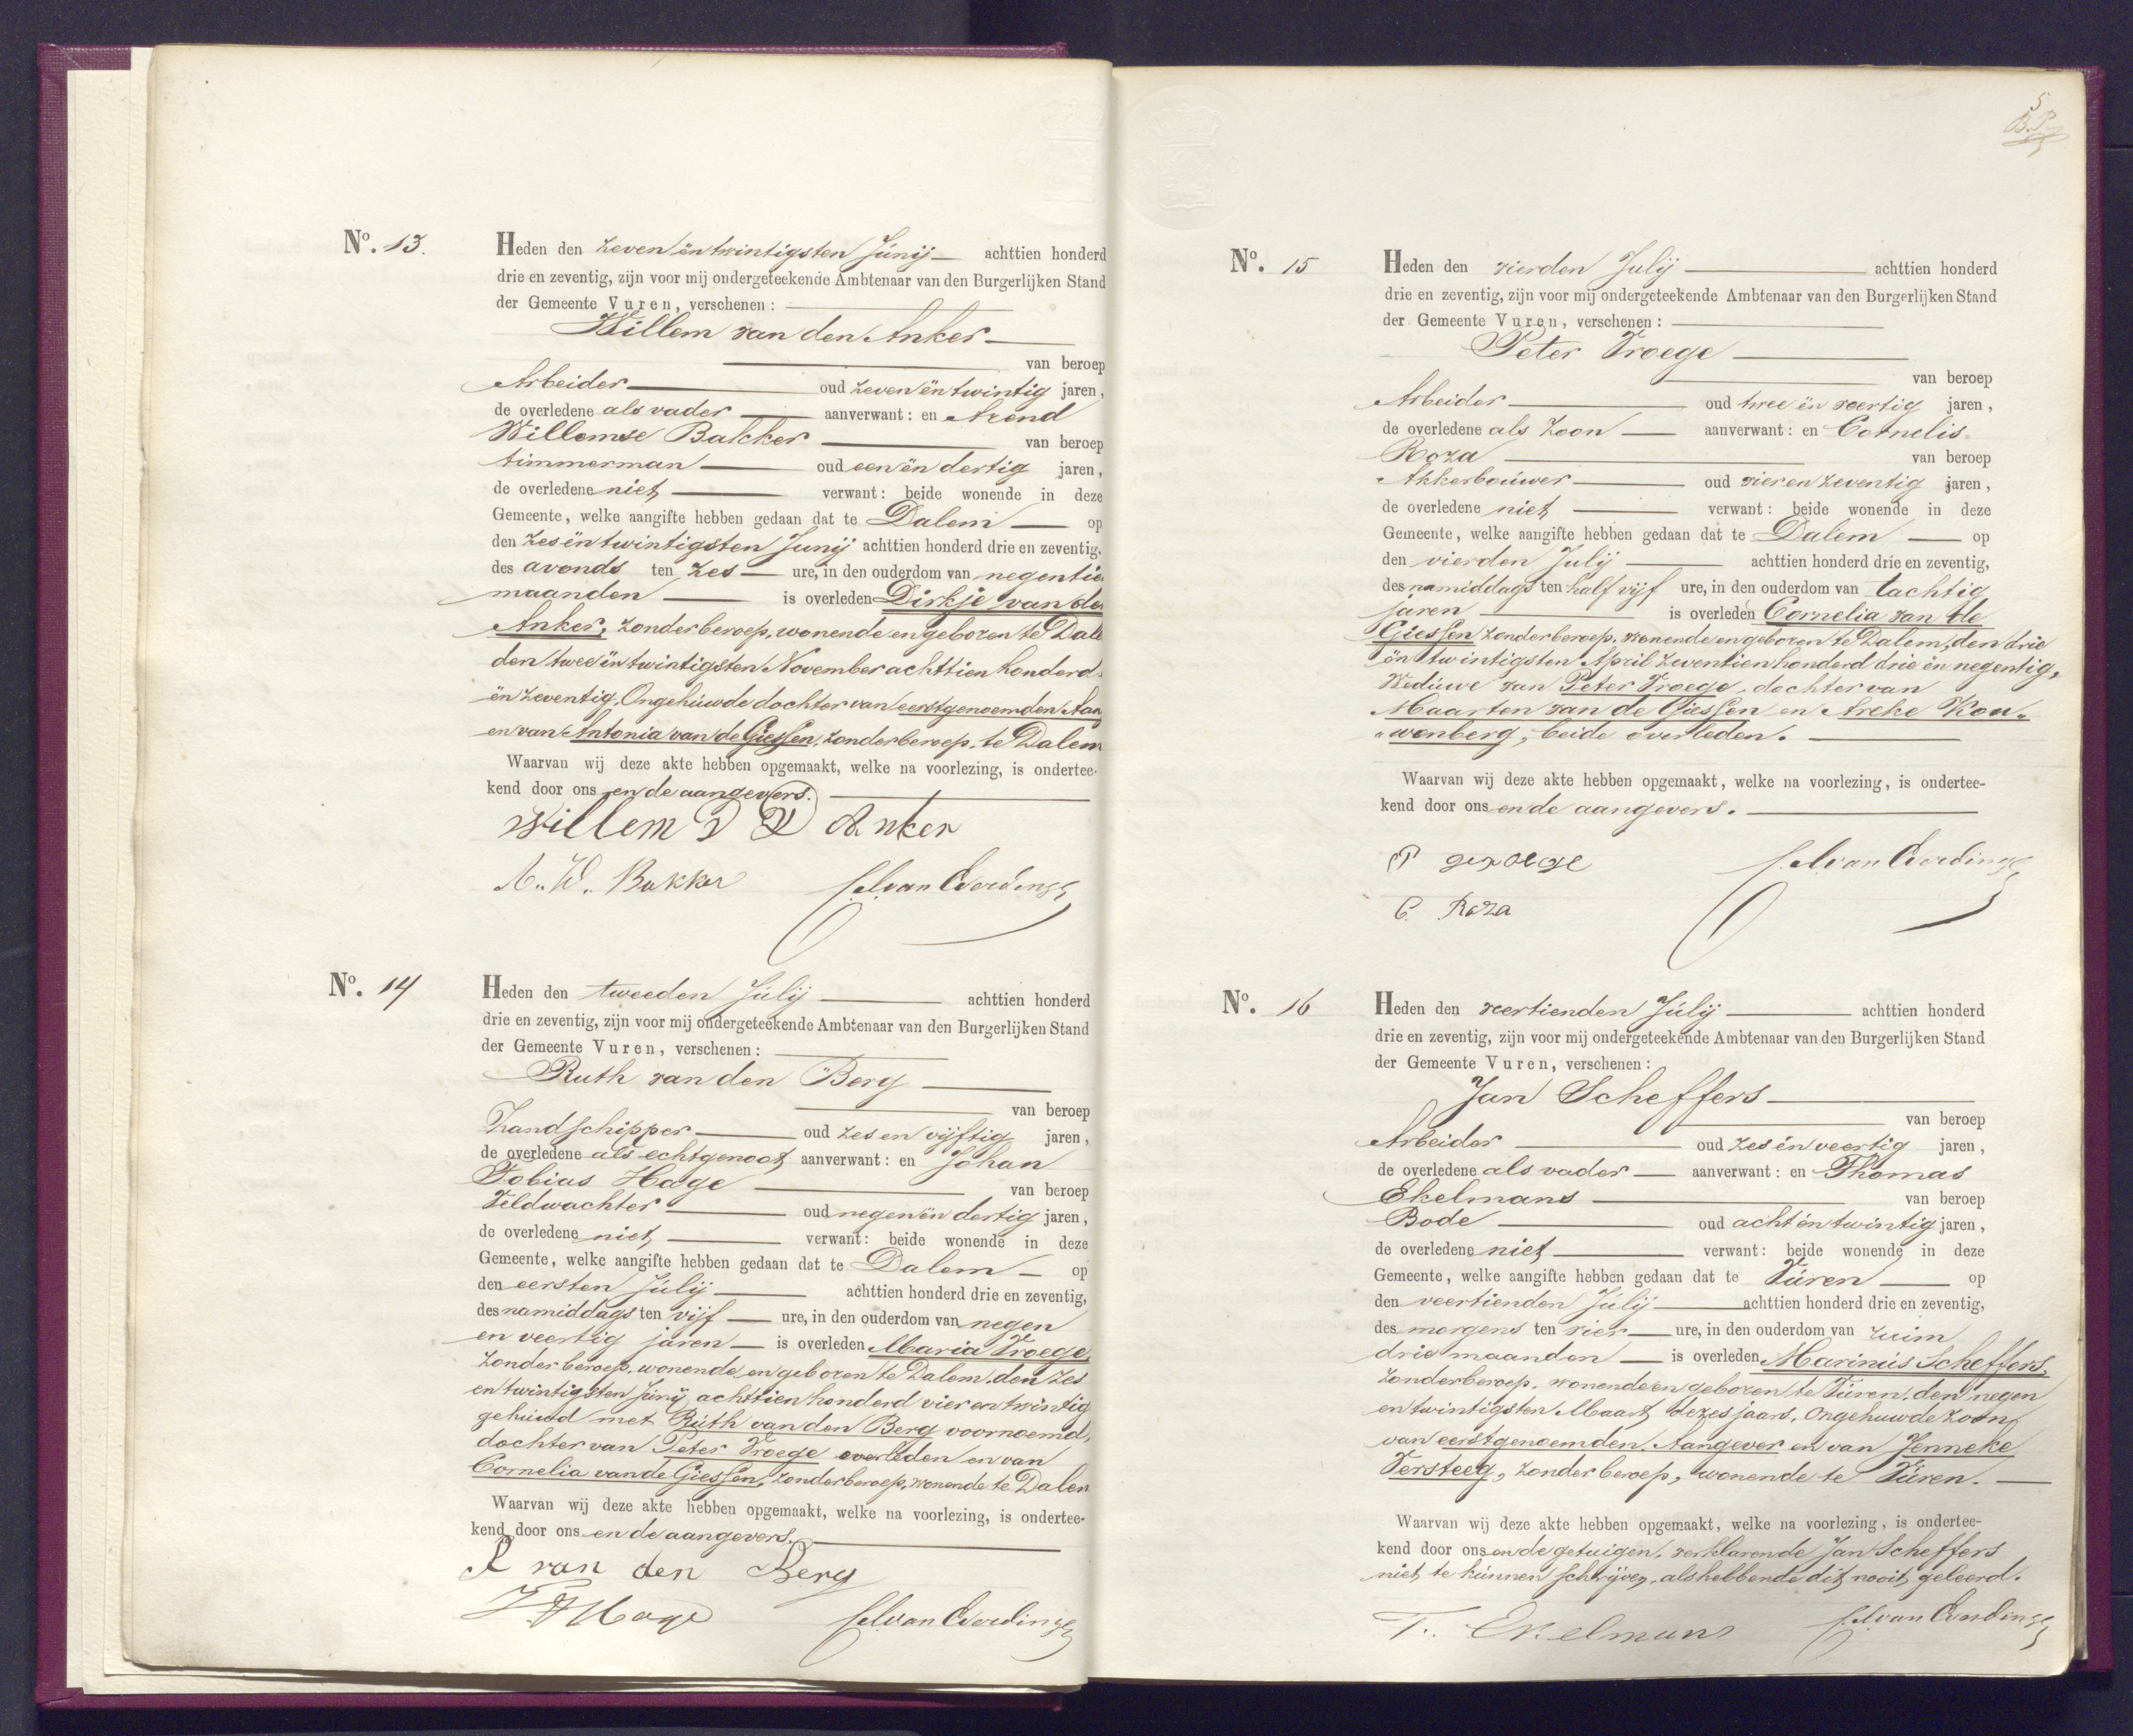 No. 13.
Heden den zeven ën twintigsten Júnij achttien honderd
drie en zeventig, zijn voor mij ondergeteekende Ambtenaar van den Burgerlijken Stand
der Gemeente Vuren, verschenen:
Willem van den Anker
van beroep
Arbeider oud zeven ën twintig jaren,
de overledene als vader aanverwant: en Arend
Willemse Bakker van beroep
timmerman oud een ën dertig jaren,
de overledene niet verwant: beide wonende in deze
Gemeente, welke aangifte hebben gedaan dat te Dalem op
den zes ën twintigsten Junij achttien honderd drie en zeventig,
des avonds ten zes ure, in den ouderdom van negentie
maanden is overleden Dirkje van de
Anker, zonder beroep, wonende en geboren te Dale
den twee ën twintigsten November achttien honderd
ën zeventig. Ongehúwde dochter van eerstgenoemden Aan
en van Antonia van de Giessen, zonder beroep, te Dalem
Waarvan wij deze akte hebben opgemaakt, welke na voorlezing, is ondertee-
kend door ons en de aangevers.
Willem V D Anker
A. W. Bakker van Everdinge
No. 14
Heden den tweeden Júlij achttien honderd
drie en zeventig, zijn voor mij ondergeteekende Ambtenaar van den Burgerlijken Stand
der Gemeente Vuren, verschenen:
Ruth van den Berg
van beroep
Zandschipper oud zes en vijftig jaren,
de overledene als echtgenoot aanverwant: en Johan
Tobias Hage van beroep
Veldwachter oud negen ën dertig jaren,
de overledene niet verwant: beide wonende in deze
Gemeente, welke aangifte hebben gedaan dat te Dalem op
den eersten Júlij achttien honderd drie en zeventig,
des namiddags ten vijf ure, in den ouderdom van negen
en veertig jaren is overleden Maria Vroege,
zonder beroep, wonende en geboren te Dalem, den zes
en twintigsten Júnij achttien honderd vier en twintig
gehúwd met Rúth van den Berg voornoemd,
dochter van Peter Vroege overleden en van
Cornelia van de Giessen, zonder beroep, wonende te Dalem
Waarvan wij deze akte hebben opgemaakt, welke na voorlezing, is ondertee-
kend door ons en de aangevers.
R van den Berg
J T Hage van Everdinge
5
No. 15
Heden den vierden Julij achttien honderd
drie en zeventig, zijn voor mij ondergeteekende Ambtenaar van den Burgerlijken Stand
der Gemeente Vuren, verschenen:
Peter Vroege
van beroep
Arbeider oud twee ën veertig jaren,
de overledene als zoon aanverwant: en Cornelis
Roza van beroep
Akkerbouwer oud vier en zeventig jaren,
de overledene niet verwant: beide wonende in deze
Gemeente, welke aangifte hebben gedaan dat te Dalem op
den vierden Julij achttien honderd drie en zeventig,
des namiddags ten half vijf ure, in den ouderdom van tachtig
jaren is overleden Cornelia van de
Giessen zonder beroep, wonende en geboren te Dalem, den drie
ën twintigsten April zeventien honderd drie ën negentig,
Wedúwe van Peter Vroege, dochter van
Maarten van de Giessen en Areke Kou„
„wenberg, beide overleden.
Waarvan wij deze akte hebben opgemaakt, welke na voorlezing, is ondertee-
kend door ons en de aangevers.
P van Everdinge
C. Roza
No. 16
Heden den veertienden Júlij achttien honderd
drie en zeventig, zijn voor mij ondergeteekende Ambtenaar van den Burgerlijken Stand
der Gemeente Vuren, verschenen:
Jan Scheffers
van beroep
Arbeider oud zes ën veertig jaren,
de overledene als vader aanverwant: en Thomas
Ekelmans van beroep
Bode oud acht ën twintig jaren,
de overledene niet verwant: beide wonende in deze
Gemeente, welke aangifte hebben gedaan dat te Vúren op
den veertienden Júlij achttien honderd drie en zeventig,
des morgens ten vier ure, in den ouderdom van ruim
drie maanden is overleden Marinús Scheffers,
zonder beroep, wonende en geboren te Vúren, den negen
en twintigsten Maart dezes jaars, Ongehuwde zoon
van eerstgenoemden Aangever en van Jenneke
Versteeg, zonder beroep, wonende te Vúren.
Waarvan wij deze akte hebben opgemaakt, welke na voorlezing, is ondertee-
kend door ons en de getuigen, verklarende Jan Scheffers
niet te kúnnen schrijven, als hebbende dit nooit geleerd.
T. Ekelmans van Everdinge